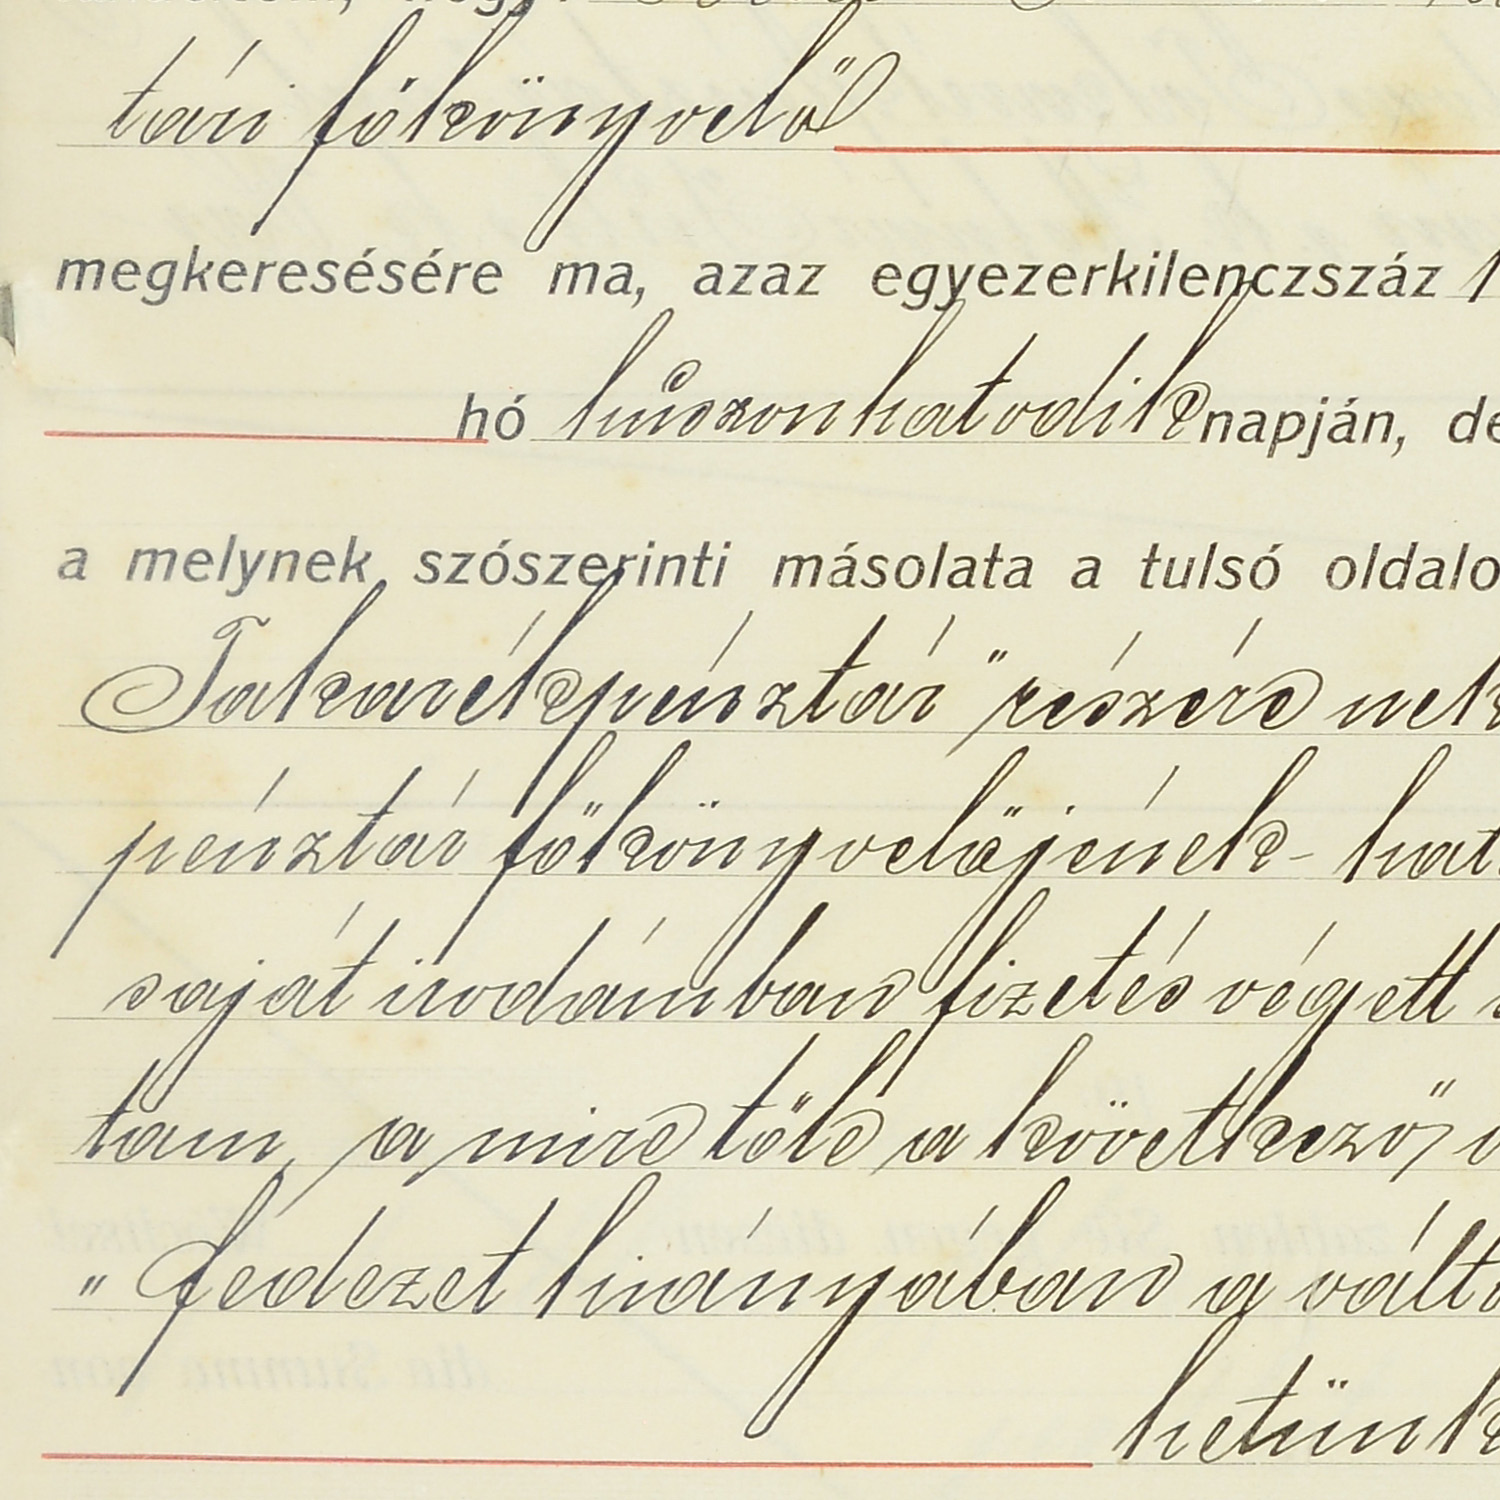 tári főkönyvelő
megkeresésére ma, azaz egyezerkilenczszáz
hó húszonhatodik napján, de
a melynek szószerinti másolata a tulsó oldalo
Takarékpénztár" részére nek
pénztár főkönyvelőjének - hat
saját irodámban fizetés végett
tam, a mire tőle a következő
"Fedezet hiányában a vált
hetünk